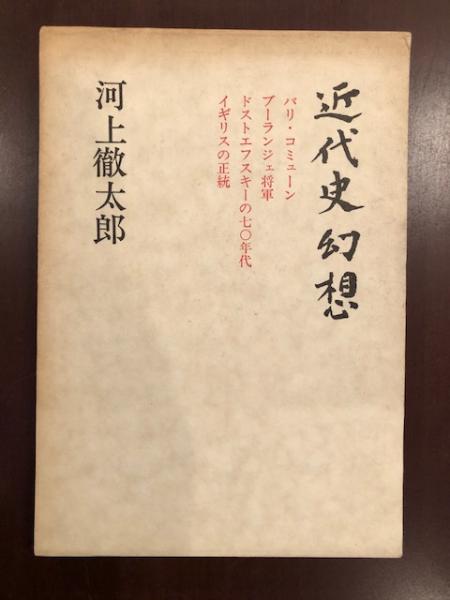 近代史幻想
パリ・コミューン
ブーランジェ将軍
ドストエフスキーの七〇年代
イギリスの正統
河上徹太郎